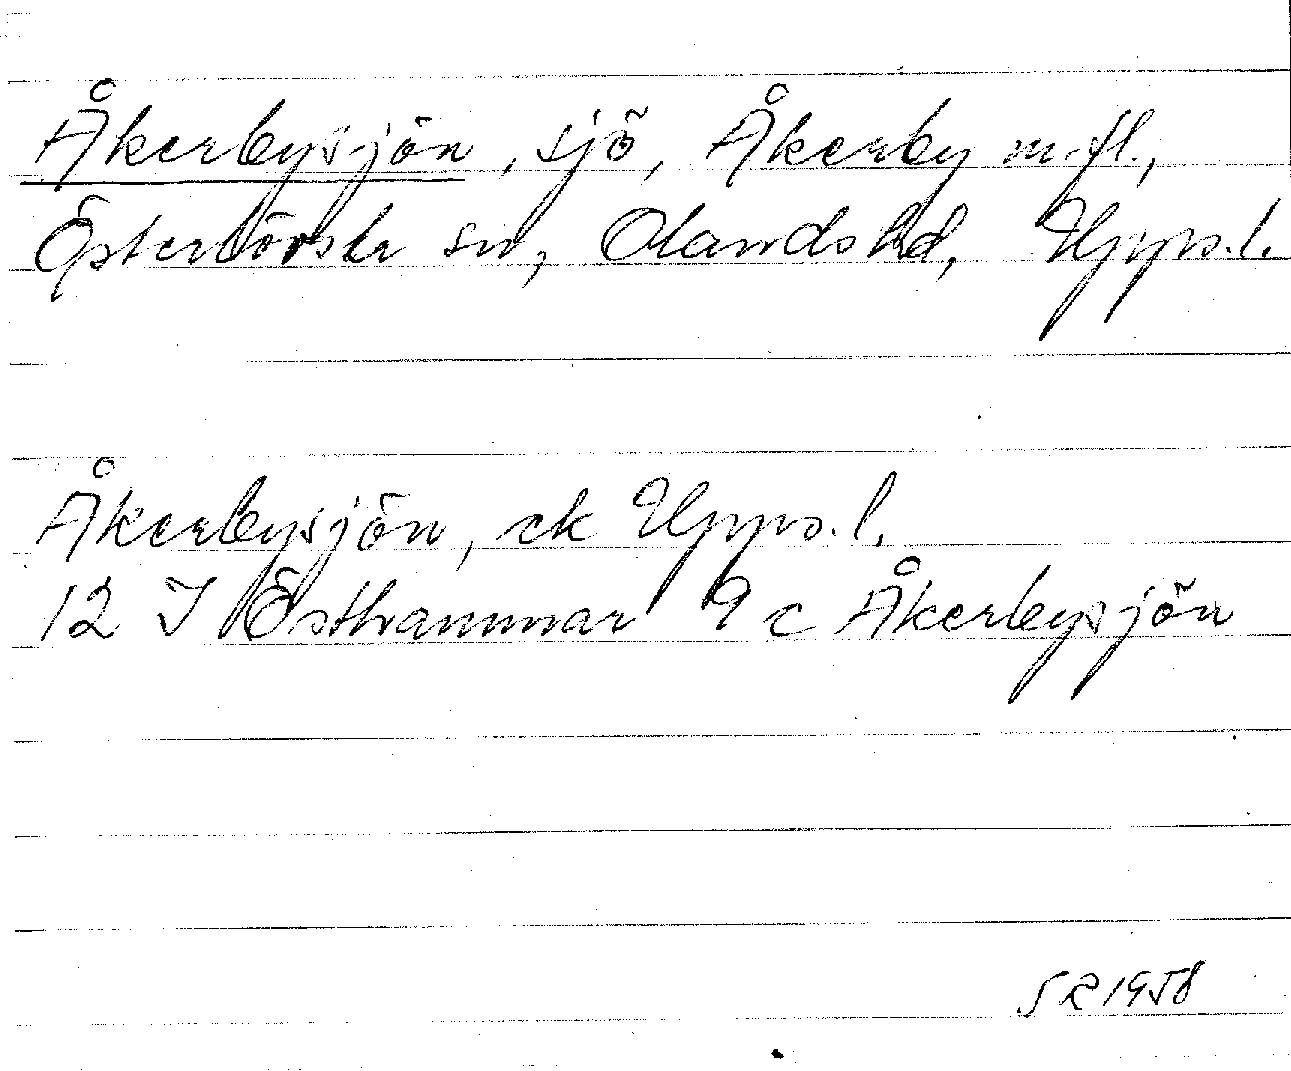 Åkerbysjön, sjö, Åkerby m.fl.,
Österlövsta sn, Olands hd, Upps. l.
Åkerbysjön, ek Upps. l.
12 I Östhammar 9 c Åkerbysjön
SR 1958